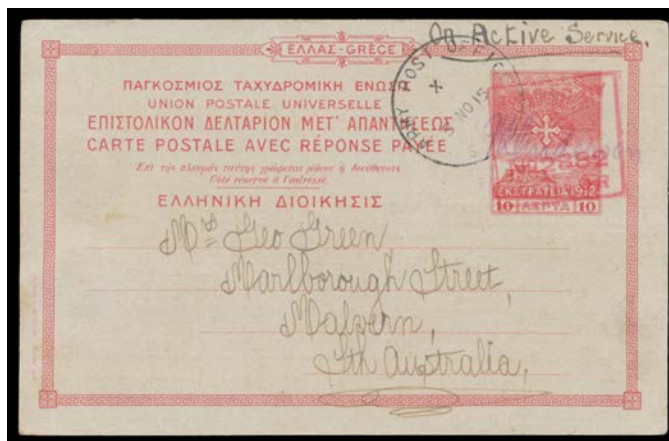 On Active Service.
ΕΛΛΑΣ-GRÈCE
ΠΑΓΚΟΣΜΙΟΣ ΤΑΧΥΔΡΟΜΙΚΗ ΕΝΩΣ
UNION POSTALE UNIVERSELLE
ΕΠΙΣΤΟΛΙΚΟΝ ΔΕΛΤΑΡΙΟΝ ΜΕΤ' ΑΠΑΝΤΗΣΕΩΣ
CARTE POSTALE AVEC RÉPONSE PAYÉE
Ἐπὶ τῆς πλευρᾶς ταύτης γράφεται μόνον ἡ διεύθυνσις
Côté réservé à l'adresse
ΕΛΛΗΝΙΚΗ ΔΙΟΙΚΗΣΙΣ
ARMY POST OFFICE
X
NO 15
S
2882
R
ΕΚΣΤΡΑΤΕΙΑ 1912
10 ΛΕΠΤΑ 10
Mrs Geo Green
Marlborough Street,
Malvern,
Sth Australia,